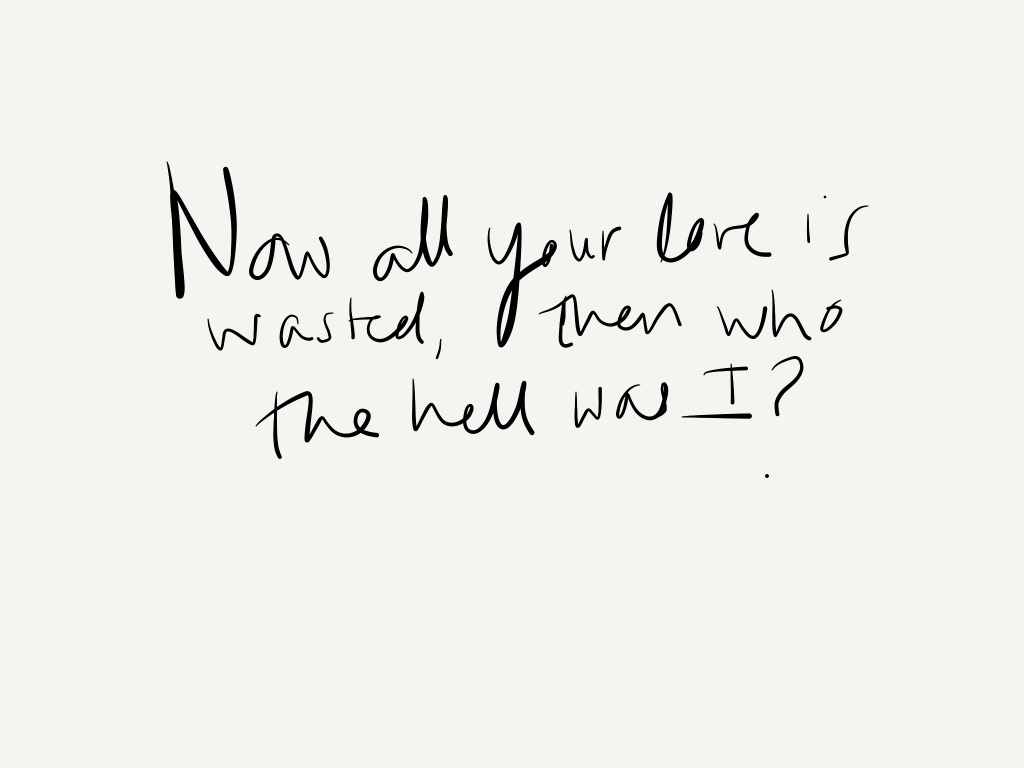 Now all your love is
wasted, then who
the hell was I?